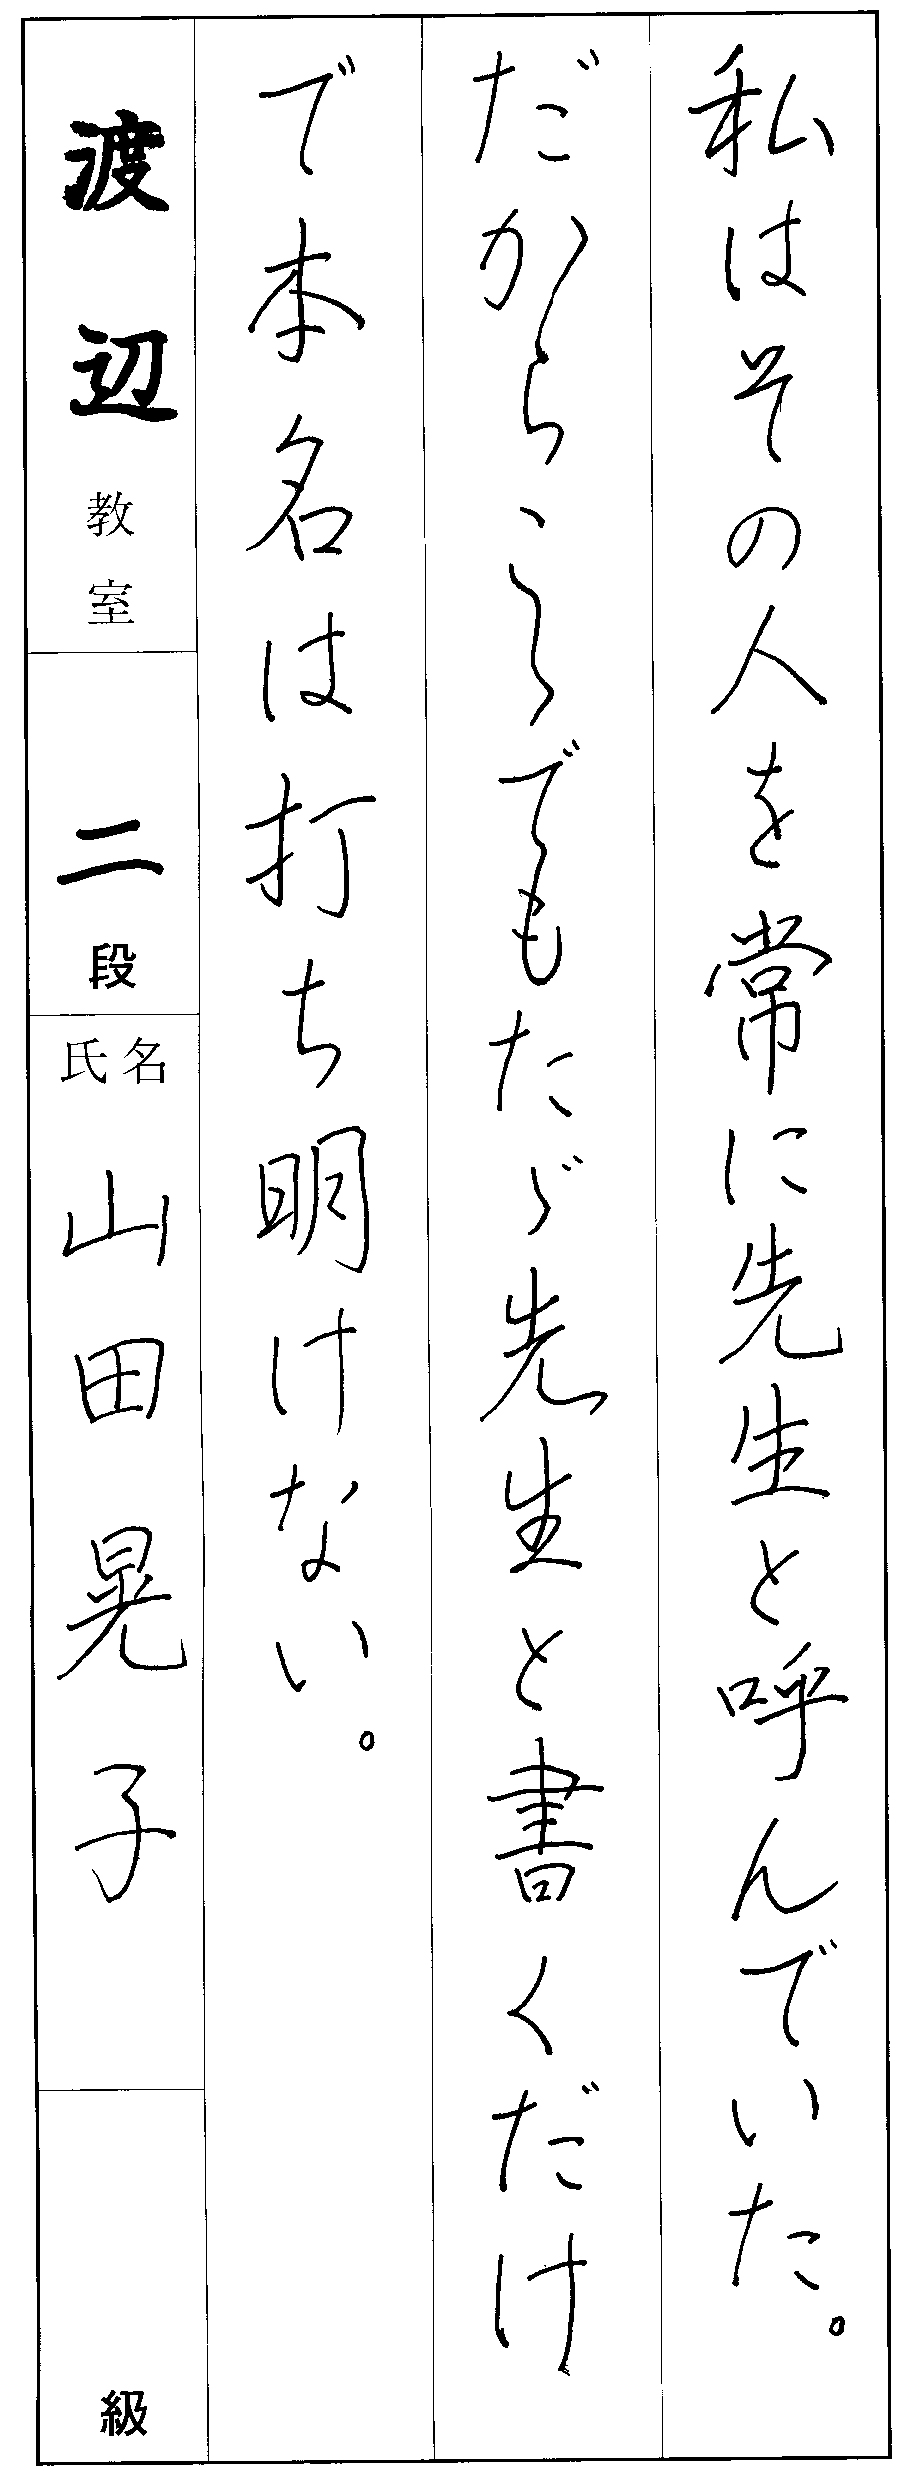 私はその人を常に先生と呼んでいた。
だからこゝでもたゞ先生と書くだけ
で本名は打ち明けない。
渡辺教室
二段
氏名 山田晃子
級